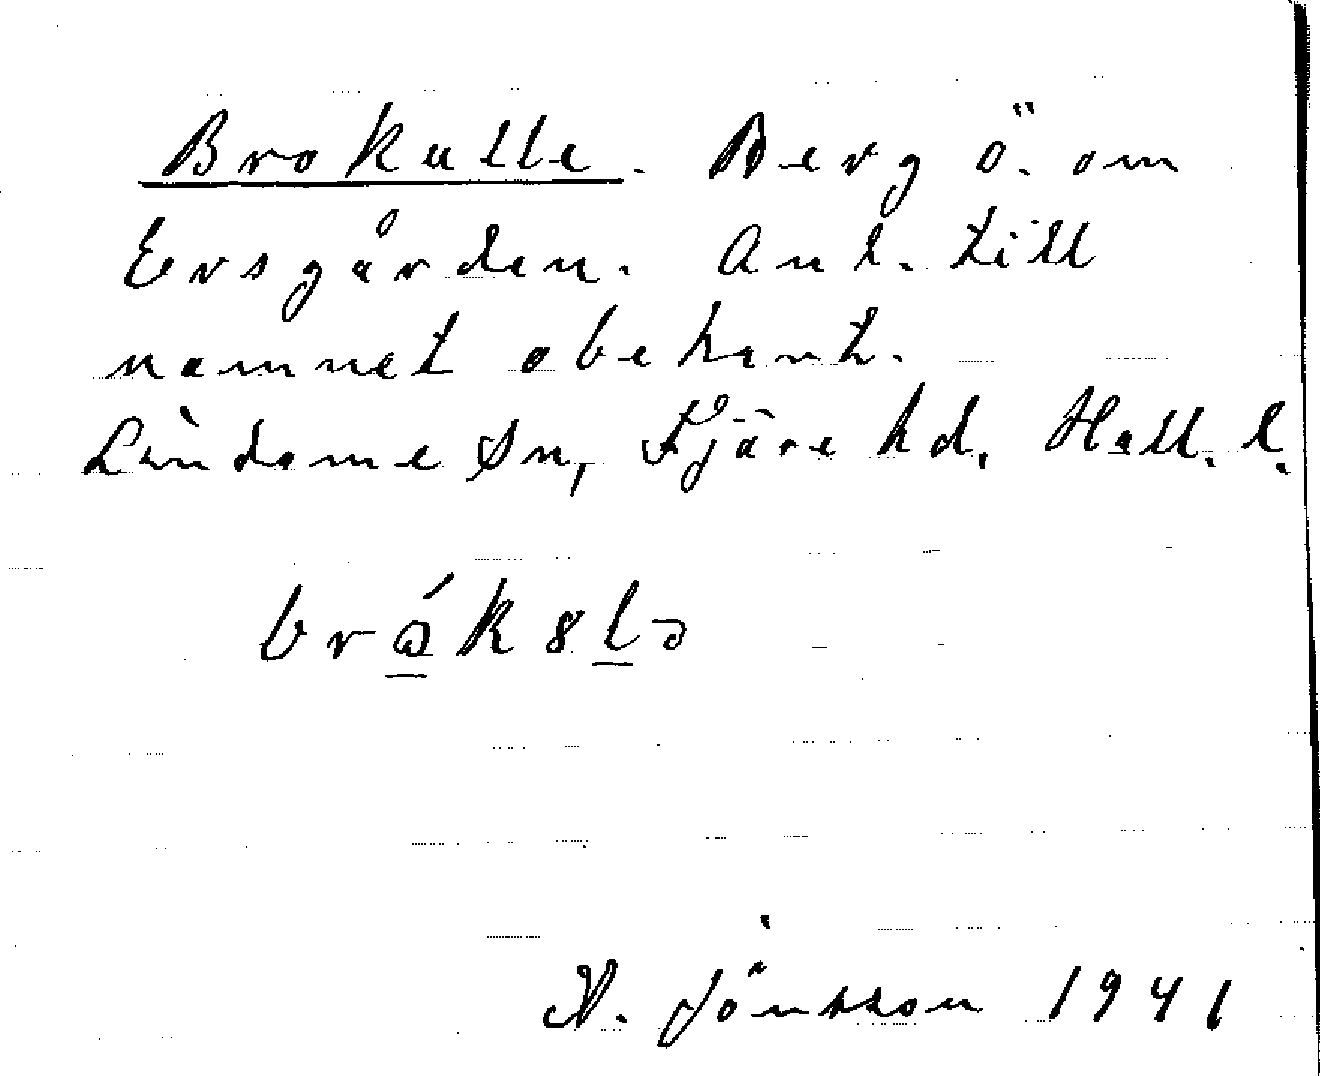 Brokulle. Berg ö. om
Ersgården. Anl. till
namnet obekant.
Lindome sn, Fjäre hd, Hall. l.
N. Jönsson 1941